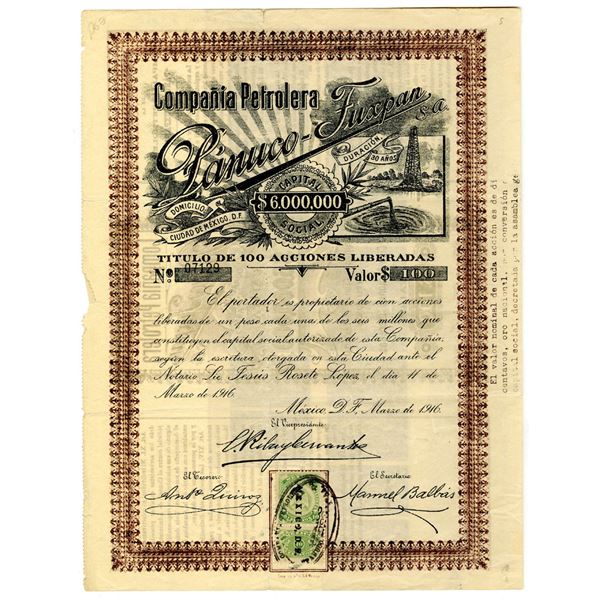 Compañia Petrolera
Pánuco-Tuxpan, S.A.
DURACION,
30 AÑOS.
CAPITAL
$ 6.000,000
SOCIAL
DOMICILIO
CIUDAD DE MEXICO, D.F.
TITULO DE 100 ACCIONES LIBERADAS
No. 07129
Valor $ 100
El portador, es propietario de cien acciones
liberadas de un peso cada una de los seis millones que
constituyen el capital social autorizado de esta Compañía;
según la escritura otorgada en esta Ciudad ante el
Notario Lic. Jesús Rosete López, el día 11 de
Marzo de 1916.
México, D. F. Marzo de 1916.
El Vicepresidente
El Tesorero
El Secretario
Antº Quiroz
Manuel Balbás
El valor nominal de cada acción es de di
centavos, oro nacional, por conversión
capital social, decretada por la asamblea ge